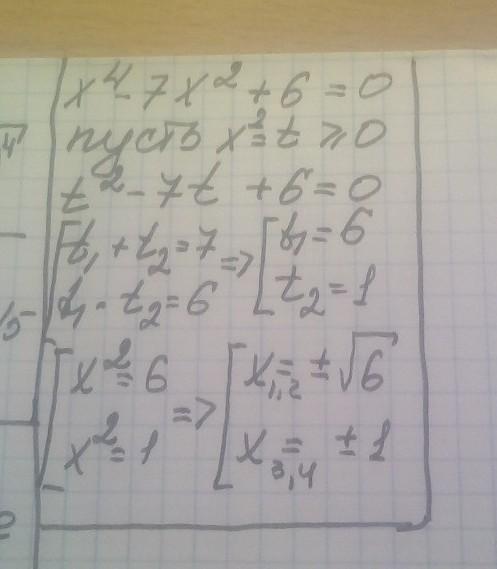 x⁴ - 7x² + 6 = 0
пусть x² = t ≥ 0
t² - 7t + 6 = 0
[ t₁ + t₂ = 7 => [ t₁ = 6
t₁ · t₂ = 6 t₂ = 1
[ x² = 6 => [ x₁,₂ = ± √6
x² = 1 x₃,₄ = ± 1